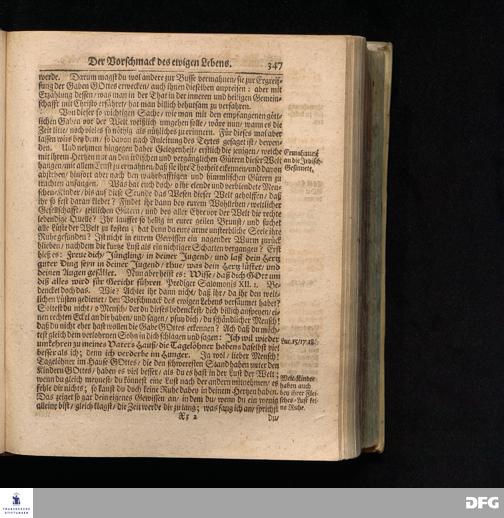 Der Vorschmack des ewigen Lebens. 347
werde. Darum magst du wol andere zur Busse vermahnen/ sie zur Ergreif-
fung der Gaben GOttes erwecken/ auch ihnen dieselben anpreisen: aber mit
Erzählung dessen/ was man in der That in der inneren und heiligen Gemein-
schafft mit Christo erfähret/ hat man billich behutsam zu verfahren.
Von dieser so wichtigen Sache/ wie man mit den empfangenen göt-
lichen Gaben vor der Welt weißlich umgehen solle/ wäre nun/ wann es die
Zeit litte/ noch vieles so nöthig als nützliches zu erinnern. Für dieses mal aber
lassen wirs bey dem/ so davon nach Anleitung des Textes gesaget ist/ bewen-
den. Und nehmen hingegen daher Gelegenheit/ erstlich die jenigen/ welche
mit ihrem Hertzen nur an den irdischen und vergänglichen Gütern dieser Welt
hangen/ mit allem Ernst zu ermahnen/ daß sie ihre Thorheit erkennen/ und davon
abstehen/ hinfort aber nach den wahrhafftigen und himmlischen Gütern zu
trachten anfangen. Was hat euch doch/ o ihr elende und verblendete Men-
schen-Kinder/ bis auf diese Stunde das Wesen dieser Welt geholffen/ daß
ihr so fest daran klebet? Findet ihr dann bey eurem Wohlleben/ weltlicher
Gesellschafft/ zeitlichen Gütern/ und bey aller Ehre vor der Welt die rechte
lebendige Quelle? Ihr lauffet so hefftig in eurer geilen Brunst/ und suchet
alle Lüste der Welt zu kosten; hat denn da eure arme unsterbliche Seele ihre
Ruhe gefunden? Ist nicht in eurem Gewissen ein nagender Wurm zurück
blieben/ nachdem die kurtze Lust als ein nichtiger Schatten vergangen? Erst
hieß es: Freue dich/ Jüngling/ in deiner Jugend/ und laß dein Hertz
guter Ding seyn in deiner Jugend/ thue/ was dein Hertz lüstet/ und
deinen Augen gefället. Nun aber heißt es: Wisse/ daß dich GOtt um
diß alles wird für Gericht führen. Prediger Salomonis XII. 1. Be-
dencket doch das. Wie? Achtet ihr dann nicht/ daß ihr/ da ihr den welt-
lichen lüsten gedienet/ den Vorschmack des ewigen Lebens versäumet habet?
Soltest du nicht/ o Mensch/ der du dieses bedenckest/ dich billich anspeyen/ ei-
nen rechten Eckel an dir haben/ und sagen/ pfuy dich/ du schändlicher Mensch!
daß du nicht eher hast wollen die Gabe GOttes erkennen? Ach daß du möch-
test gleich dem verlohrnen Sohn in dich schlagen und sagen: Ich wil wieder
umkehren zu meines Vaters Hause/ die Tagelöhner habens daselbst viel
besser als ich; denn ich verderbe im Hunger. Ja wol/ lieber Mensch!
Tagelöhner im Hause GOttes/ die den schweresten Stand haben unter den
Kindern GOttes/ haben es viel besser/ als du es hast in der Lust der Welt;
wenn du gleich meynest/ du könnest eine Lust nach der andern mitnehmen/ es
fehle dir nicht; so kanst du doch keine Ruhe dabey in deinem Hertzen haben.
Das zeiget so gar dein eigenes Gewissen an/ in dem du/ wenn du ein wenig
alleine bist/ gleich klagest/ die Zeit werde dir zu lang; was fang ich an/ sprichst
Xx 2 du/
Ermahnung
an die Irdisch-
Gesinnete.
Luc. 15/17.18.
Welt-Kinder
haben auch
bey ihrer Flei-
sches-Lust kei-
ne Ruhe.
FRANCKESCHE
STIFTUNGEN
DFG